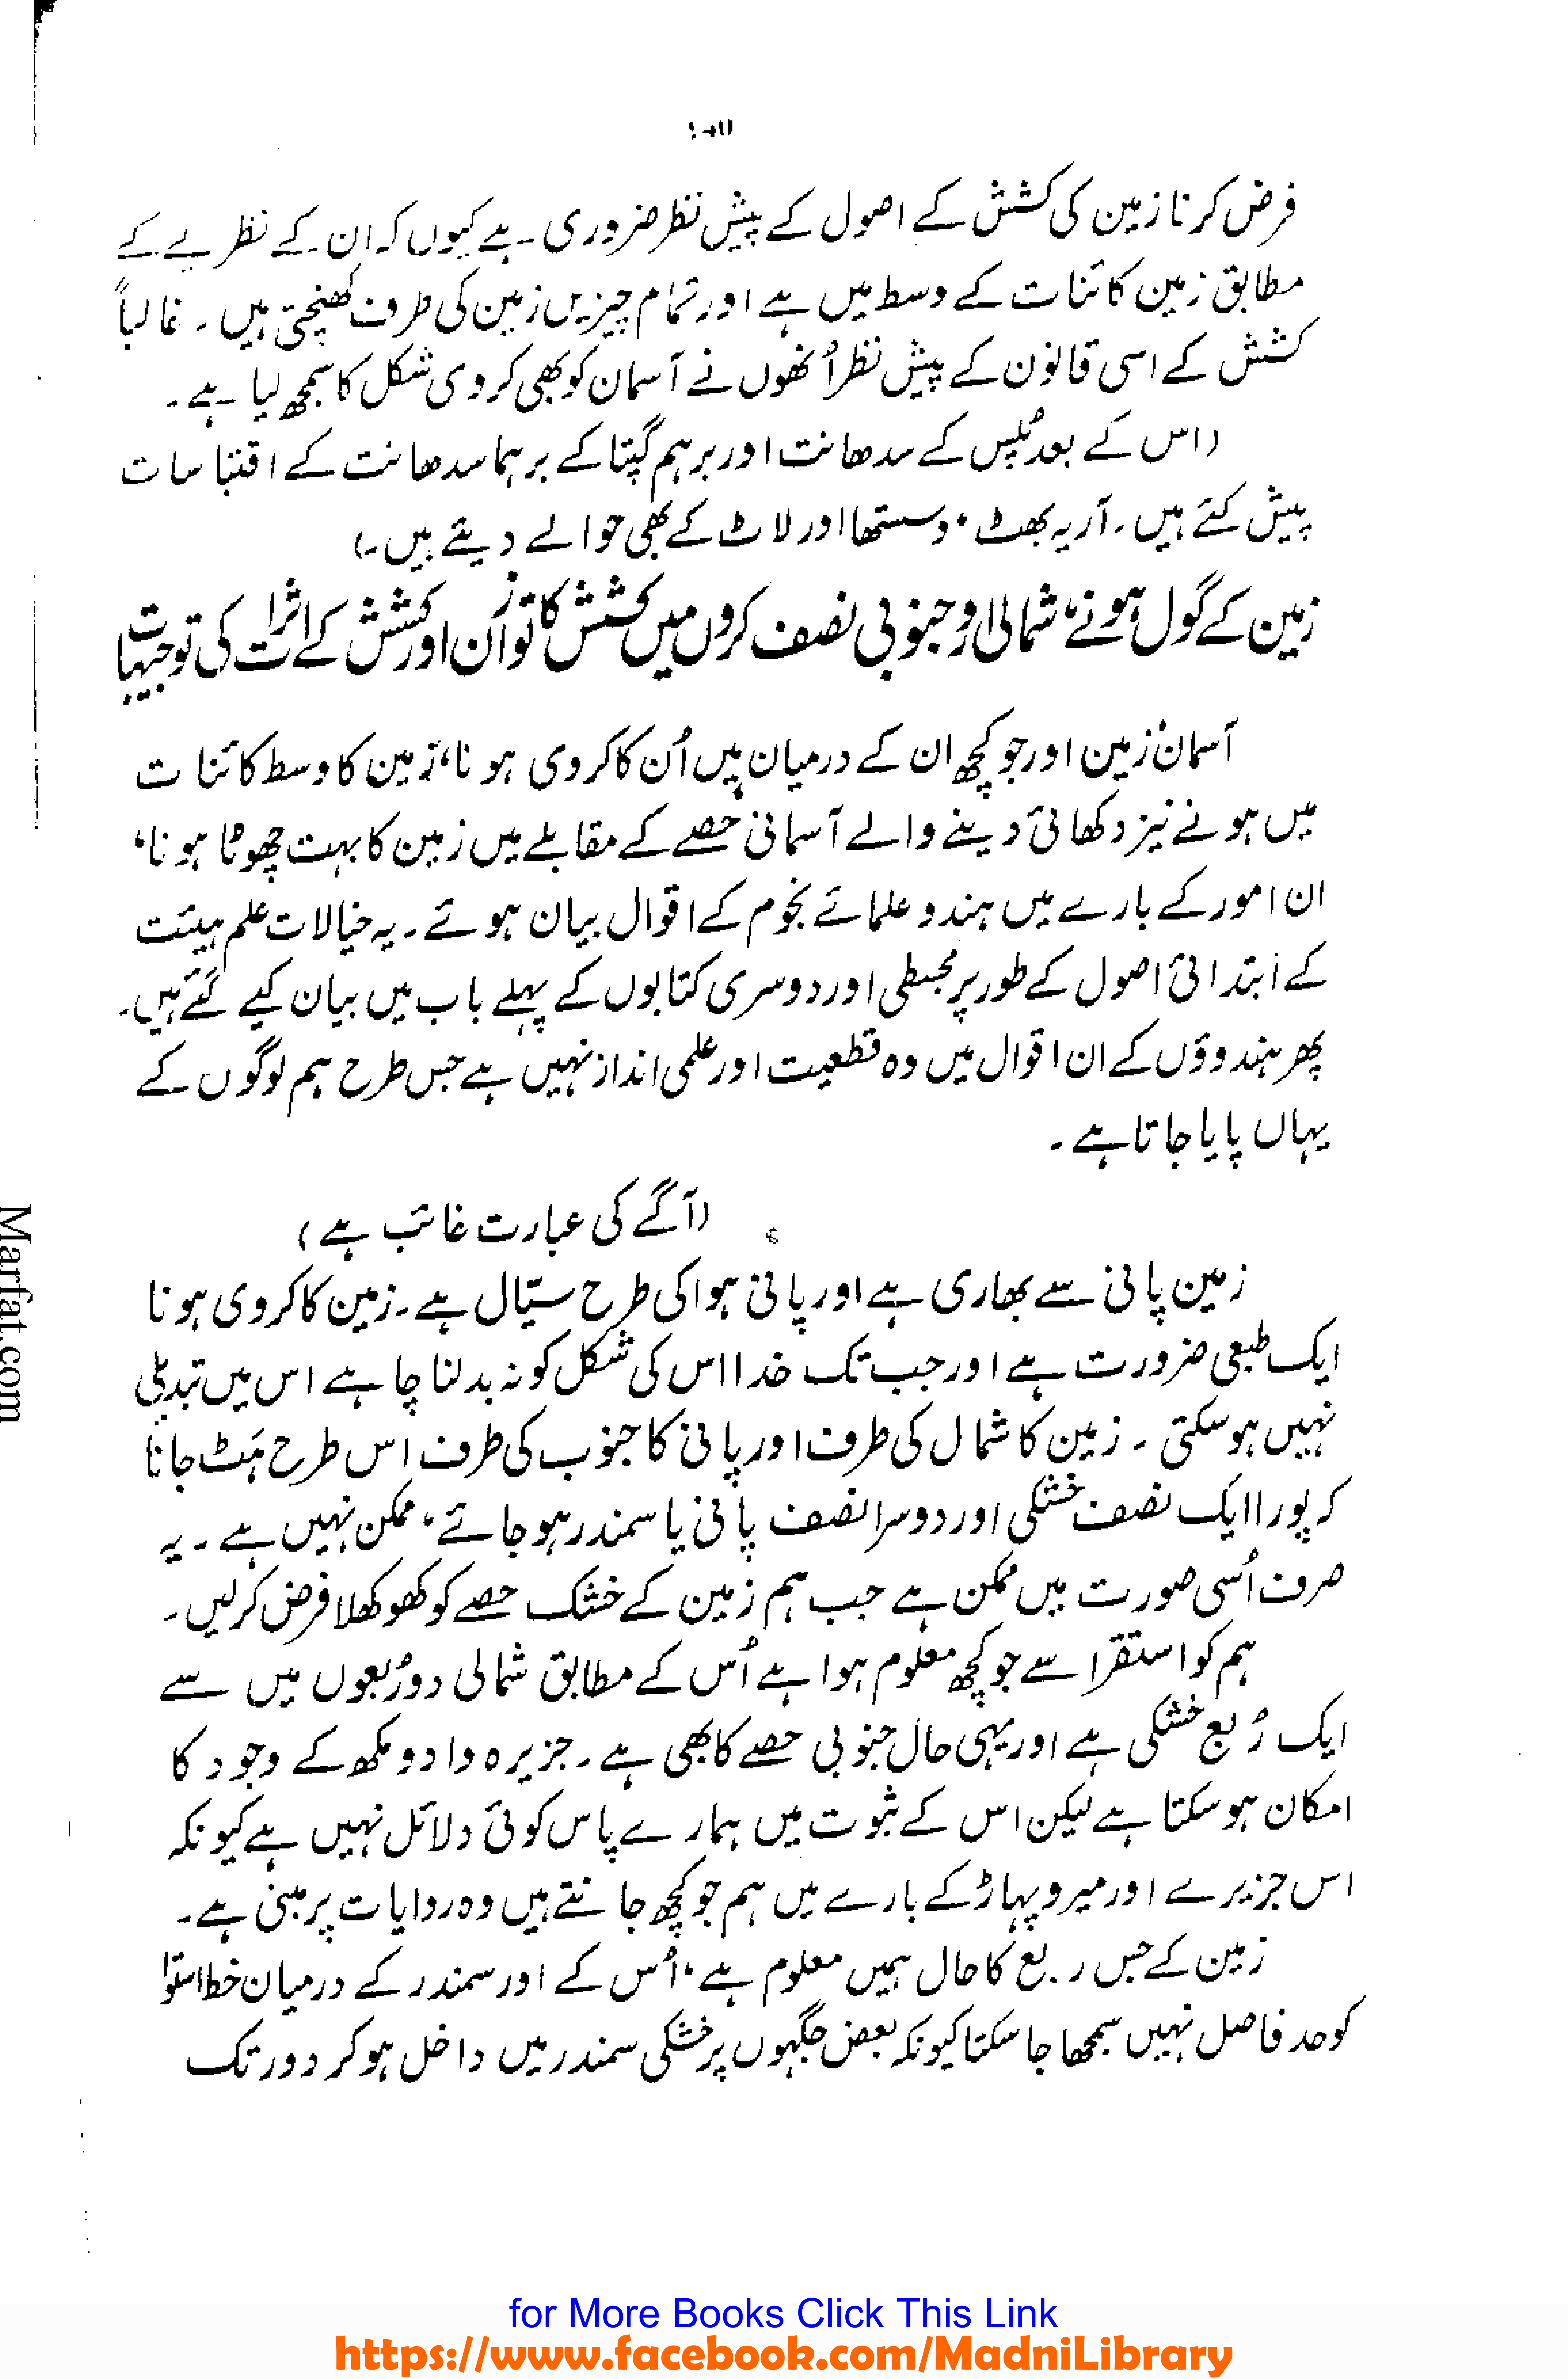 فرض کرنا زمین کی کشش کے اصول کے پیش نظر ضروری ہے کیوں کہ ان کے نظریے کے
مطابق زمین کائنات کے وسط میں ہے اور تمام چیزیں زمین کی طرف کھنچتی ہیں۔ غالباً
کشش کے اسی قانون کے پیش نظر اُنھوں نے آسمان کو بھی کروی شکل کا سمجھ لیا ہے۔
(اس کے بعد پُلِس کے سدھانت اور برہم گپتا کے برہما سدھانت کے اقتباسات
پیش کئے ہیں۔ آریہ بھٹ، وسستھا اور لاٹ کے بھی حوالے دیئے ہیں۔)
زمین کے گول ہونے، شمالی اور جنوبی نصف کروں میں کشش کا توازن اور کشش کے اثرات کی توجیہات
آسمان، زمین اور جو کچھ ان کے درمیان ہیں اُن کا کروی ہونا، زمین کا وسط کائنات
میں ہونے نیز دکھائی دینے والے آسمانی حصے کے مقابلے میں زمین کا بہت چھوٹا ہونا،
ان امور کے بارے میں ہندو علمائے نجوم کے اقوال بیان ہوئے۔ یہ خیالات علم ہیئت
کے ابتدائی اصول کے طور پر مجسطی اور دوسری کتابوں کے پہلے باب میں بیان کیے گئے ہیں۔
پھر ہندوؤں کے ان اقوال میں وہ قطعیت اور علمی انداز نہیں ہے جس طرح ہم لوگوں کے
یہاں پایا جاتا ہے۔
(آگے کی عبارت غائب ہے)
زمین پانی سے بھاری ہے اور پانی ہوا کی طرح سیّال ہے۔ زمین کا کروی ہونا
ایک طبعی ضرورت ہے اور جب تک خدا اس کی شکل کو نہ بدلنا چاہے اس میں تبدیلی
نہیں ہو سکتی۔ زمین کا شمال کی طرف اور پانی کا جنوب کی طرف اس طرح ہَٹ جانا
کہ پورا ایک نصف خشکی اور دوسرا نصف پانی یا سمندر ہو جائے، ممکن نہیں ہے۔ یہ
صرف اُسی صورت میں ممکن ہے جب ہم زمین کے خشک حصے کو کھوکھلا فرض کر لیں۔
ہم کو استقرا سے جو کچھ معلوم ہوا ہے اُس کے مطابق شمالی دو رُبعوں میں سے
ایک رُبع خشکی ہے اور یہی حال جنوبی حصے کا بھی ہے۔ جزیرہ وادومکھ کے وجود کا
امکان ہو سکتا ہے لیکن اس کے ثبوت میں ہمارے پاس کوئی دلائل نہیں ہے کیونکہ
اس جزیرے اور میرو پہاڑ کے بارے میں ہم جو کچھ جانتے ہیں وہ روایات پر مبنی ہے۔
زمین کے جس ربع کا حال ہمیں معلوم ہے، اُس کے اور سمندر کے درمیان خط استوا
کو حد فاصل نہیں سمجھا جا سکتا کیونکہ بعض جگہوں پر خشکی سمندر میں داخل ہو کر دور تک
Marfat.com
for More Books Click This Link
https://www.facebook.com/MadniLibrary